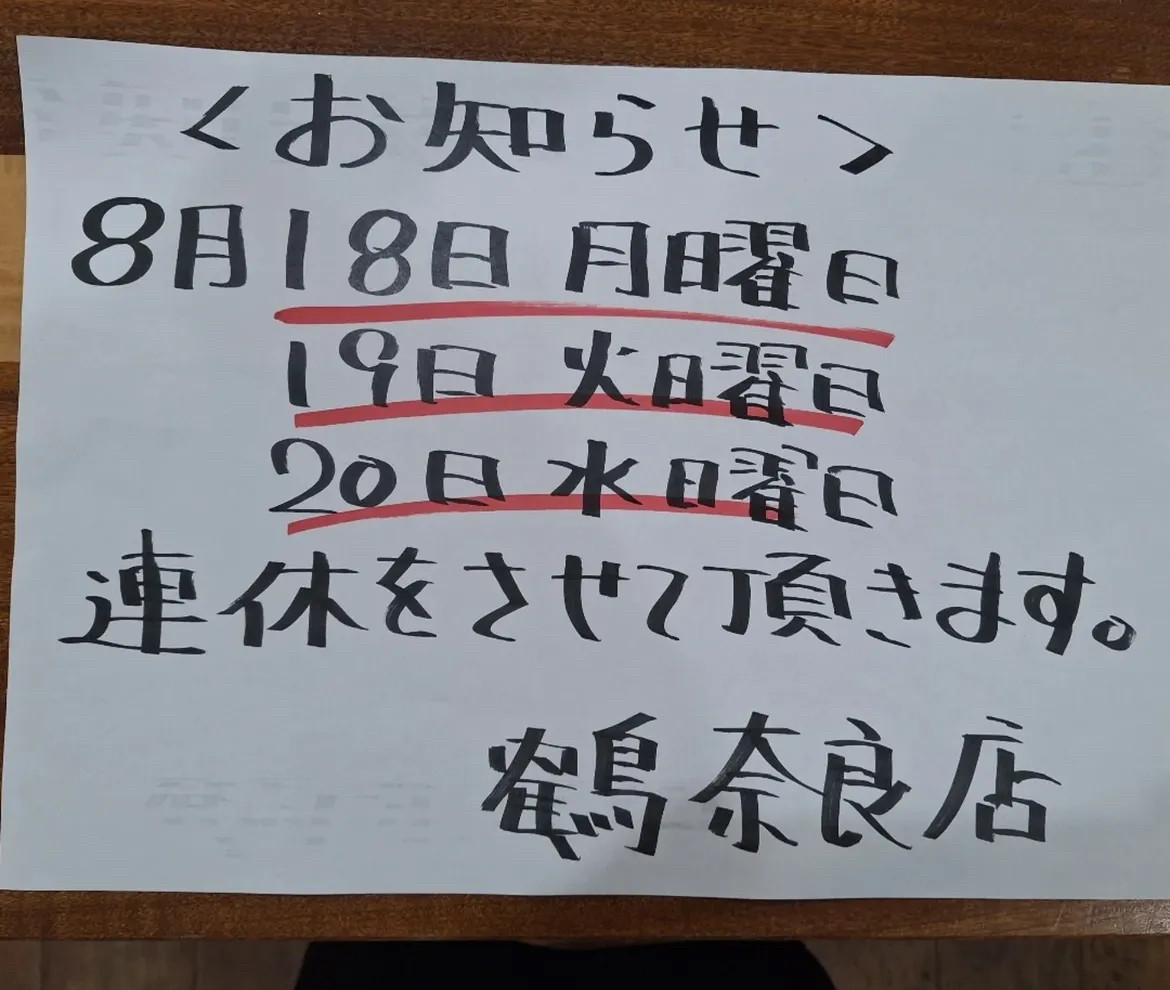 <お知らせ>
8月18日 月曜日
19日 火曜日
20日 水曜日
連休をさせて頂きます。
鶴奈良店